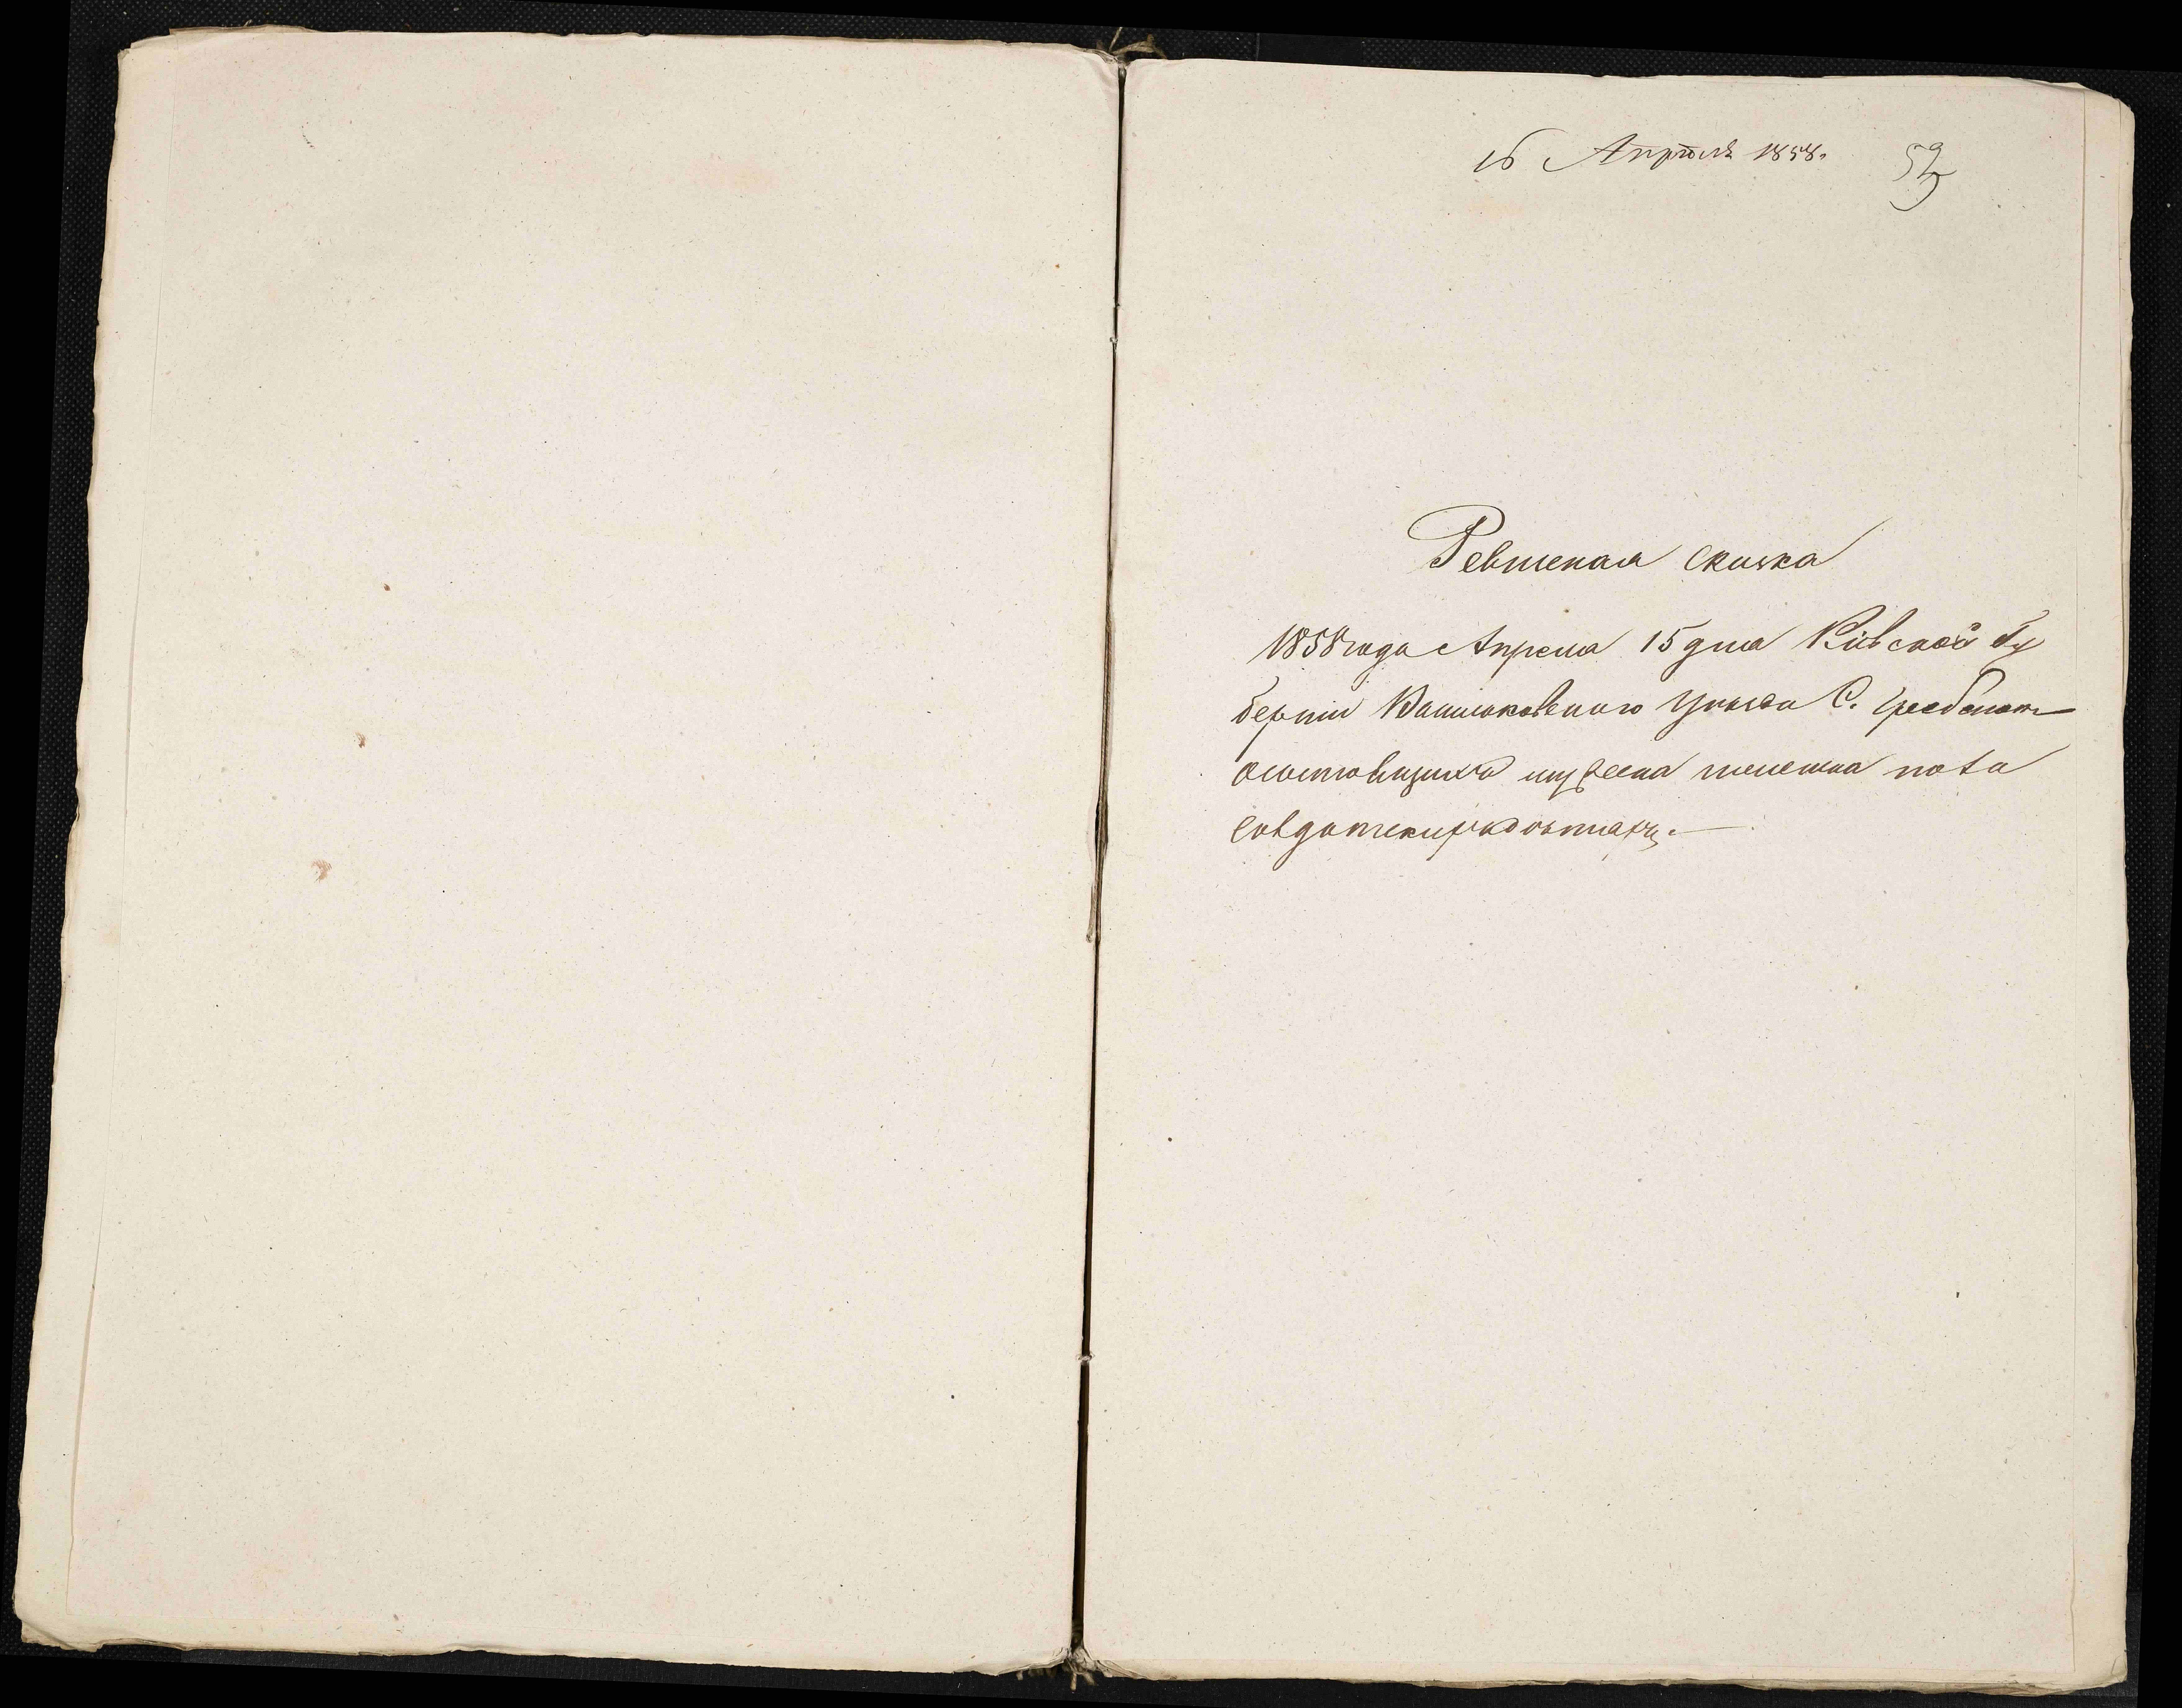 16 Апрѣля 1858.
Ревизская сказка
1858 года Апреля 15 дня Кіевской Гу
берніи Васильковского уезда С.
состовящихъ мужеска женска пола
солдатскихъ